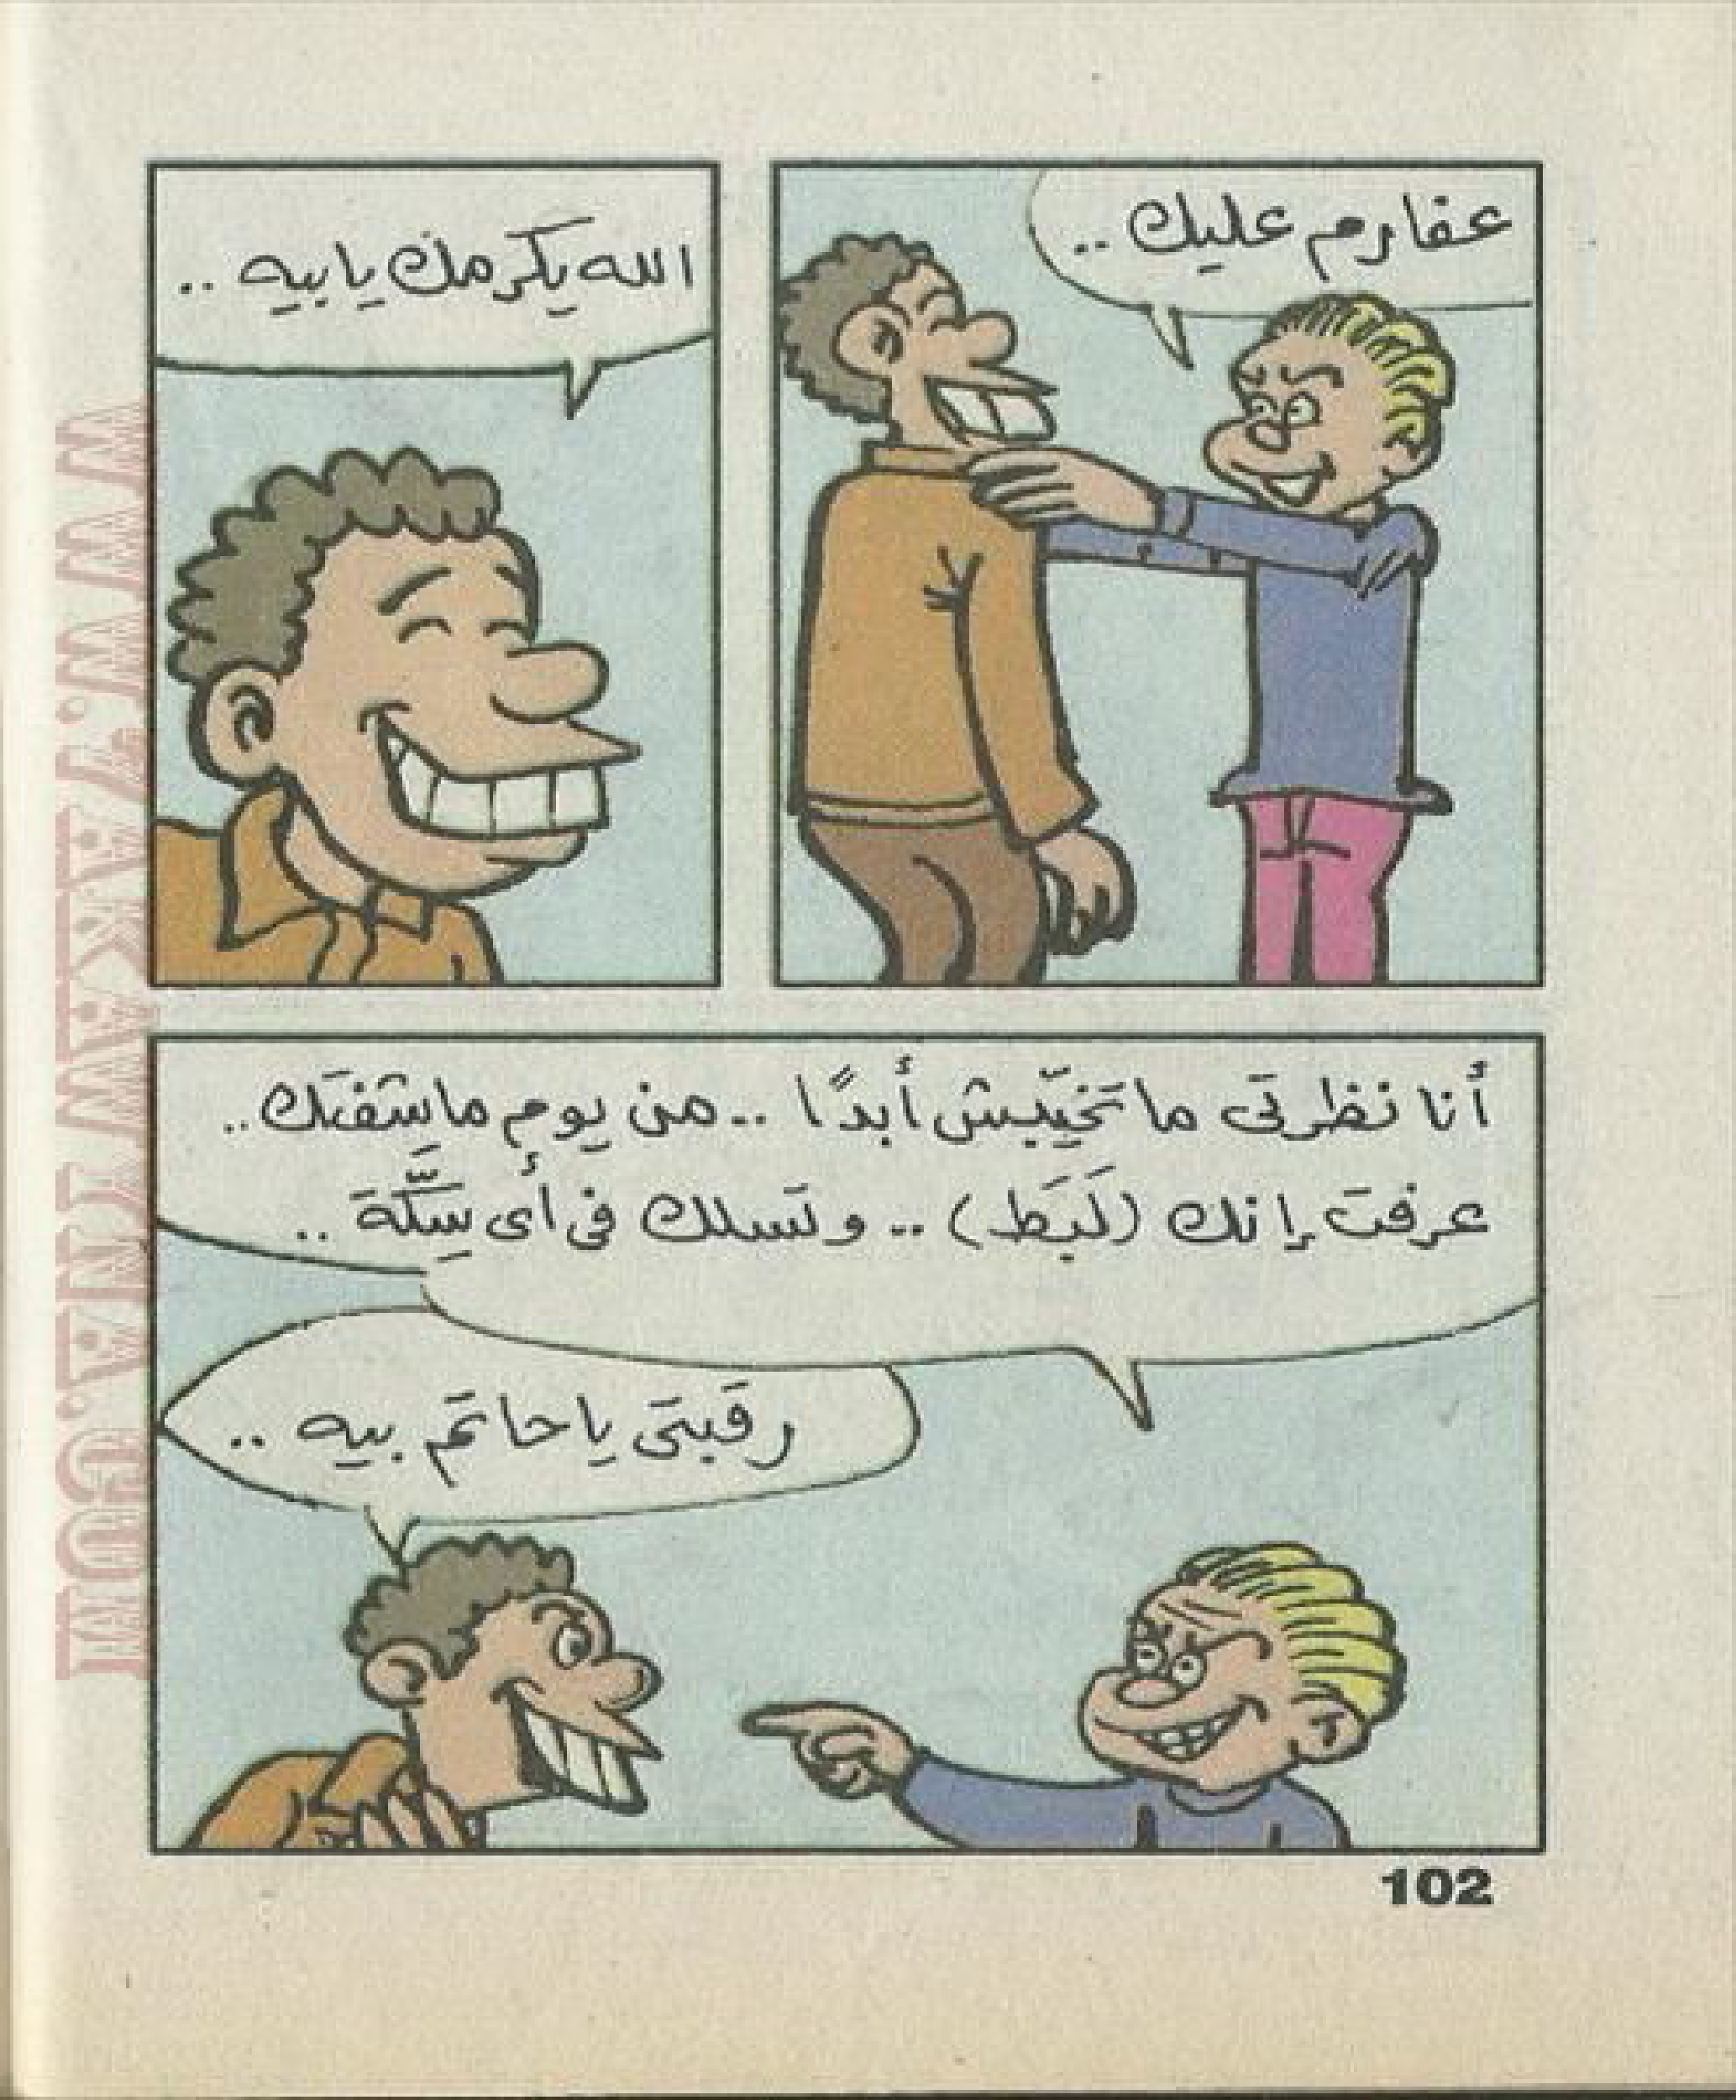 عفارم عليك ..
الله يكرمك يا بيه ..
أنا نظرتى ما تخيّبش أبدًا .. من يوم ما شفتك ..
عرفت إنك (لَبَط) .. وتسلك فى أى سِكَّة ..
رقبتى يا حاتم بيه ..
102
WWW.7AKAWTNA.COM